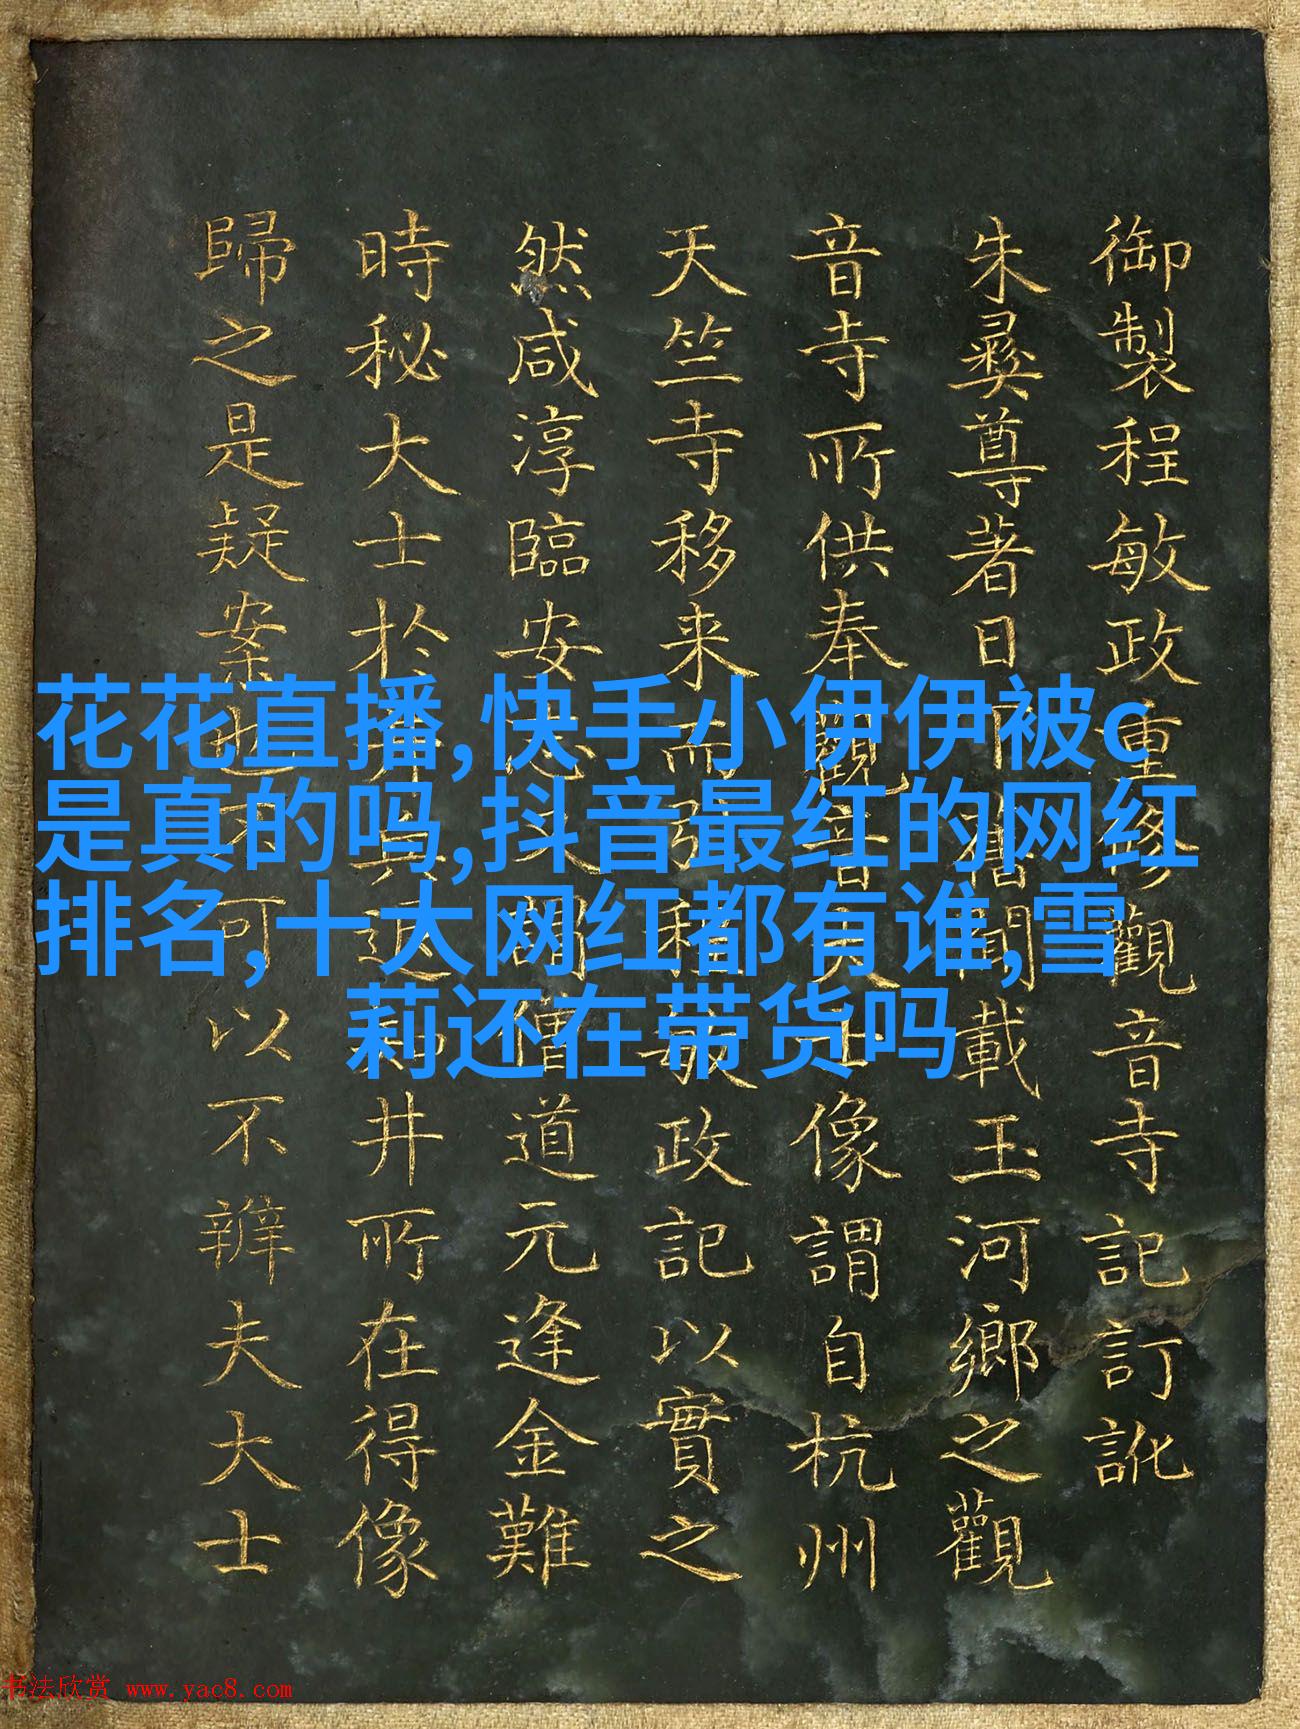 御製程敏政重修觀音寺記訂訛
朱彝尊著日下舊聞載玉河鄉之觀
音寺所供奉觀音大士像謂自杭州
天竺寺移来而引程敏政記以實之
然咸淳臨安志又僧道元逢金難
時秘大士於井返井所在得像
歸之是疑案也不可以不辨夫大士
花花直播,快手小伊伊被c
是真的吗,抖音最红的网红
排名,十大网红都有谁,雪
莉还在带货吗
书法欣赏 www.yac8.com